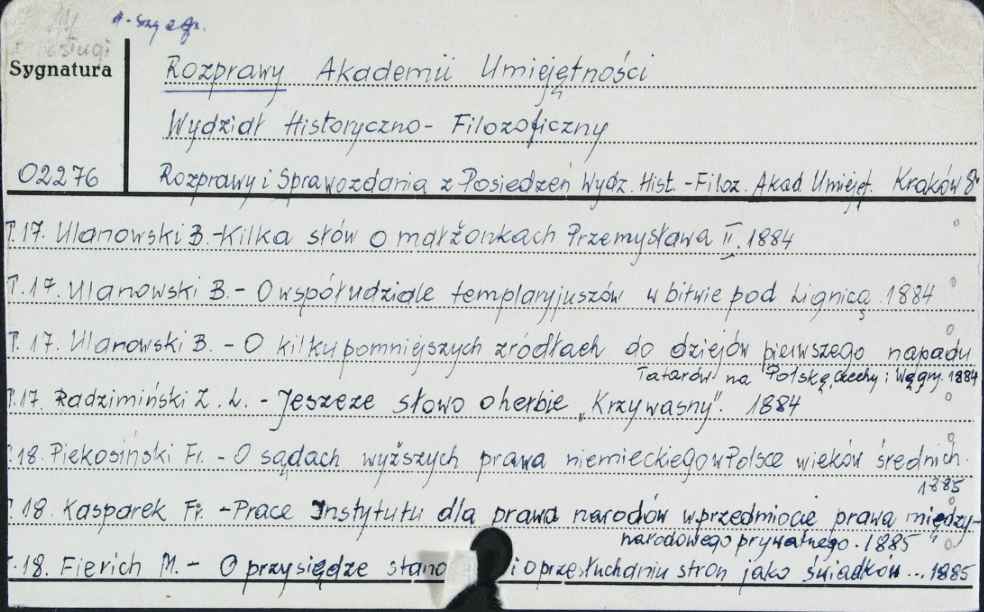 Sygnatura
Rozprawy Akademii Umiejętności
Wydział Historyczno-Filozoficzny
02276 Rozprawy i Sprawozdania z Posiedzeń Wydz. Hist.-Filoz. Akad. Umiejęt. Kraków 8°
T.17. Ulanowski B.-Kilka słów o małżonkach Przemysława II. 1884
T.17. Ulanowski B.- O współudziale templaryjuszów w bitwie pod Lignicą. 1884
T.17. Ulanowski B. - O kilku pomniejszych źródłach do dziejów pierwszego napadu
Tatarów na Polskę, Czechy i Węgry. 1884
T.17 Radzimiński Z. L. - Jeszcze słowo o herbie „Krzywasny". 1884
18. Piekosiński Fr. - O sądach wyższych prawa niemieckiego w Polsce wieków średnich.
1885
T.18. Kasparek Fr. -Prace Instytutu dla prawa narodów w przedmiocie prawa między-
narodowego prywatnego. 1885
18. Fierich M. - O przysiędze i o przesłuchaniu stron jako świadków ... 1885